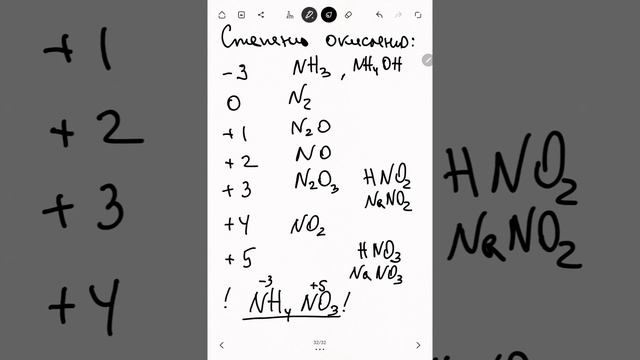 Степени окисления:
-3 NH3, NH4OH
0 N2
+1 N2O
+2 NO
+3 N2O3 HNO2
NaNO2
+4 NO2
+5 HNO3
NaNO3
-3 +5
! NH4NO3!
32/32
+1
+2
+3
+4
HNO2
NaNO2